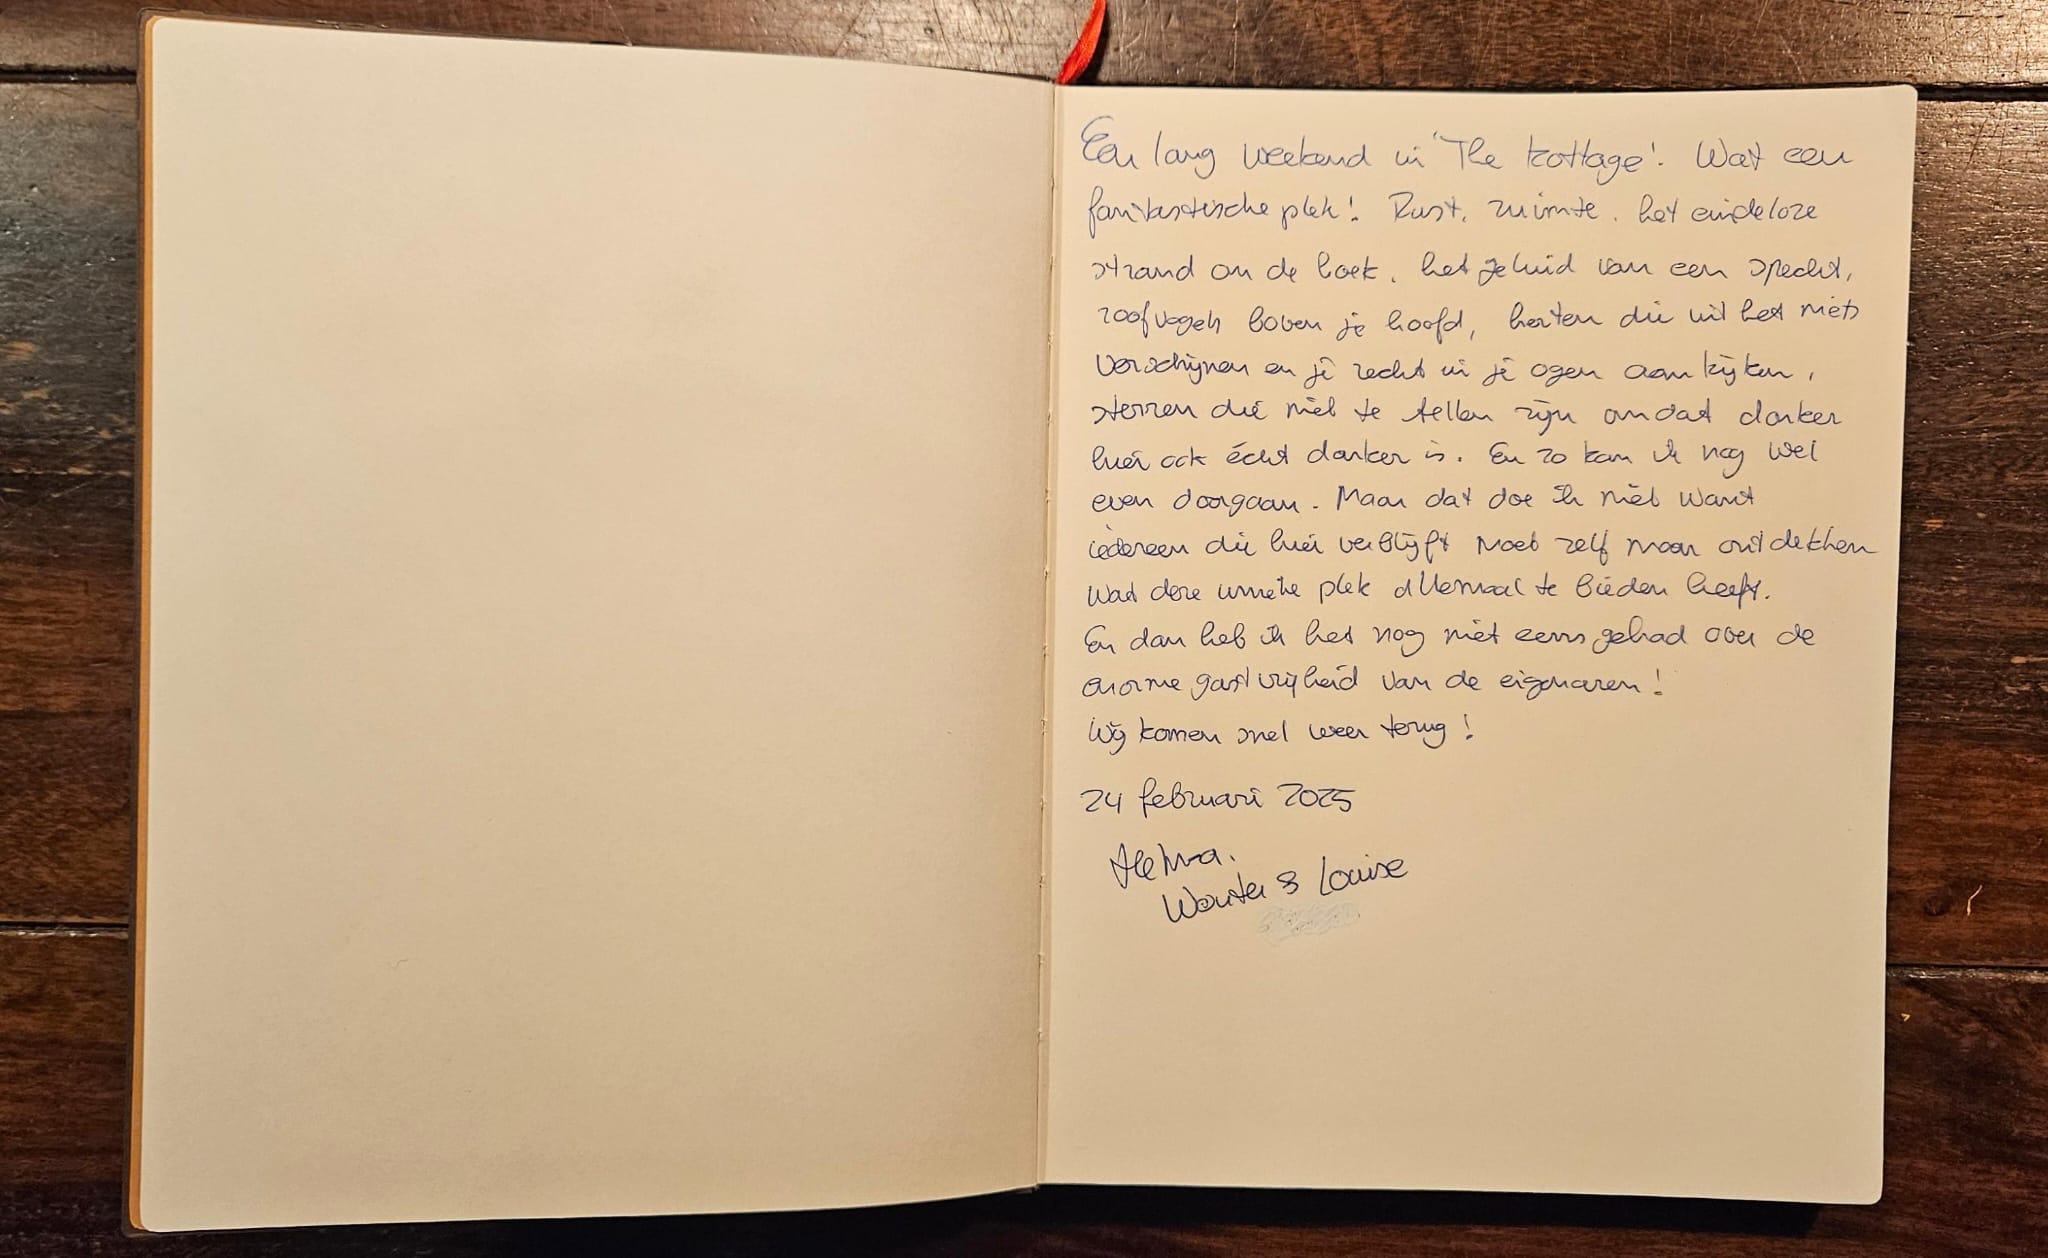 Een lang weekend in 'The Kottage'. Wat een
fantastische plek! Rust, ruimte, het eindeloze
strand om de hoek, het geluid van een specht,
roofvogels boven je hoofd, herten die uit het niets
verschijnen en je recht in je ogen aankijken,
sterren die niet te tellen zijn omdat donker
hier ook écht donker is. En zo kan ik nog wel
even doorgaan. Maar dat doe ik niet want
iedereen die hier verblijft moet zelf maar ontdekken
wat deze unieke plek allemaal te bieden heeft.
En dan heb ik het nog niet eens gehad over de
enorme gastvrijheid van de eigenaren!
Wij komen snel weer terug!
24 februari 2025
Wouter & Louise